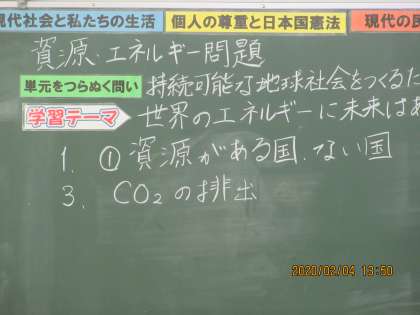 現代社会と私たちの生活 個人の尊重と日本国憲法 現代の民
資源・エネルギー問題
単元をつらぬく問い 持続可能な地球社会をつくるた
学習テーマ 世界のエネルギーに未来はあ
1. ①資源がある国、ない国
3. CO2の排出
2020/02/04 13:50